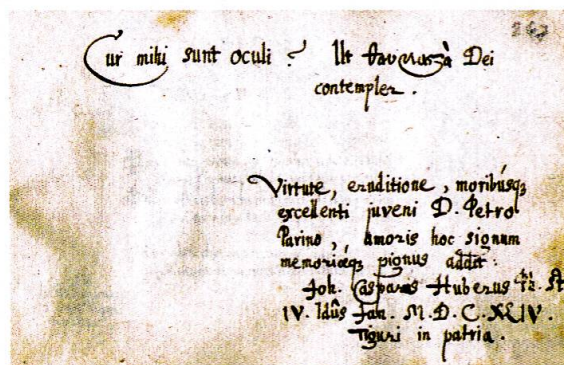 Cur mihi sunt oculi? Ut θαυμαστὰ Dei
contempler.
Virtute, eruditione, moribúsq;
excellenti juveni D. Petro
Parino, amoris hoc signum
memoriæq; pignus addit:
Joh. Casparus Huberus
IV. Idûs Jan. M.D.C.XLIV.
Tiguri in patria.